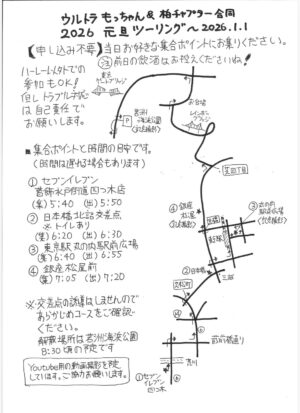 ウルトラもっちゃん& 柏チャプター合同
2026 元旦ツーリング~2026.1.1
【申し込み不要】当日お好きな集合ポイントにお集りください。
注 前日の飲酒はお控えくださいね!
ハーレー以外での
参加もOK!
但しトラブル対応
は自己責任で
お願いします。
東京
ゲートブリッジ
若洲
海浜公園
P
お台場
レインボー
ブリッジ
■集合ポイントと時間の目安です。
(時間は遅れる場合もあります)
① セブンイレブン
葛飾水戸街道四つ木店
(集)5:40 (出)5:50
② 日本橋北詰交差点
※トイレあり
(集)6:20 (出)6:30
③ 東京駅丸の内駅前広場
(集)6:40 (出)6:55
④ 銀座 松屋前
(集)7:05 (出)7:20
※交差点の誘導はしませんので
あらかじめコースをご確認
ください。
解散場所は若洲海浜公園
8:30頃の予定です
Youtube用の動画撮影を予定
しています。ご協力お願いします。
芝四丁目
④ 銀座
松屋
③ 丸の内
駅前広場
②日本橋
三越
言問通り
荒川
①セブン
イレブン
四つ木